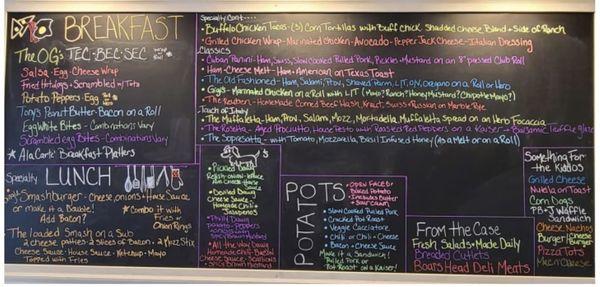 BREAKFAST
The OG's TEC·BEC·SEC
Salsa-Egg-Cheese Wrap
Fried Hotdogs-Scrambled w/Tots
Potato-Peppers-Egg
Tony's Peanut Butter-Bacon on a Roll
Egg White Bites - Combinations Vary
Scrambled egg Bites-Combinations Vary
Ala Carte Breakfast Platters
Specialty LUNCH
Smashburger-Cheese, onions+House Sauce
or make it a Double!
Add Bacon!
Combo it with
Fries or
Onion Rings
The loaded Smash on a Sub
2 cheese patties-2 slices of Bacon-2 Mozz Stix
Cheese Sauce-House Sauce-Ketchup-Mayo
Topped with Fries
Specialty Cont...
Buffalo Chicken Tacos-(3) Corn Tortillas with Buff Chick, Shredded Cheese Blend + Side of Ranch
Grilled Chicken Wrap-Marinated Chicken-Avocado-Pepper Jack Cheese-Italian Dressing
Classics
Cuban Panini-Ham, Swiss, Slow Cooked Pulled Pork, Pickles+Mustard on an 8" pressed Club Roll
Ham-Cheese Melt-Ham+American on Texas Toast
The Old Fashioned-Ham, Salami, Prov, Shaved Parm, LT, ON, Oregano on a Roll or Hero
Gigi's-Marinated Chicken on a Roll with LT (Mayo? Ranch? Honey Mustard? Chipotle Mayo?)
The Reuben-Homemade Corned Beef Hash, Kraut, Swiss+Russian on Marble Rye
Touch of Italy
The Muffaletta-Ham, Prov, Salami, Mozz, Mortadella, Muffaletta Spread on an Hero Focaccia
The Rosetta-Aged Prociutto, House Pesto with Roasted Red Peppers on a Kaiser-Balsamic Truffle glaze
The Sopresatta-with Tomato, Mozzarella, Basil Infused Honey (As a Melt or on a Roll)
Pickled Dawg
Relish-onion-
Cheese-House
Sauce
Deviled Dawg
Cheese Sauce-
Homemade Chili-
Jalapenos
Philly Dawg
Potato-Peppers
All the Way Dawg
Homemade Chili-Bacon
Cheese Sauce-Scallions
Spicy Brown Mustard
POTATO POTS
Open Faced
Baked Potato
Includes Butter
+ Sour Cream
Slow Cooked Pulled Pork
Crocked Pot Roast
Veggie Cacciatore
Chili or Chili+Cheese
Bacon+Cheese Sauce
Make it a Sandwich!
Pulled Pork or
Pot Roast on a Kaiser!
From the Case
Fresh Salads-Made Daily
Breaded Cutlets
Boars Head Deli Meats
Something For
the Kiddos
Grilled Cheese
Nutella on Toast
Corn Dogs
PB+J Waffle
Sandwich
Cheese Nachos
Burger/Cheese
Burger
Pizza Tots
Mac n Cheese